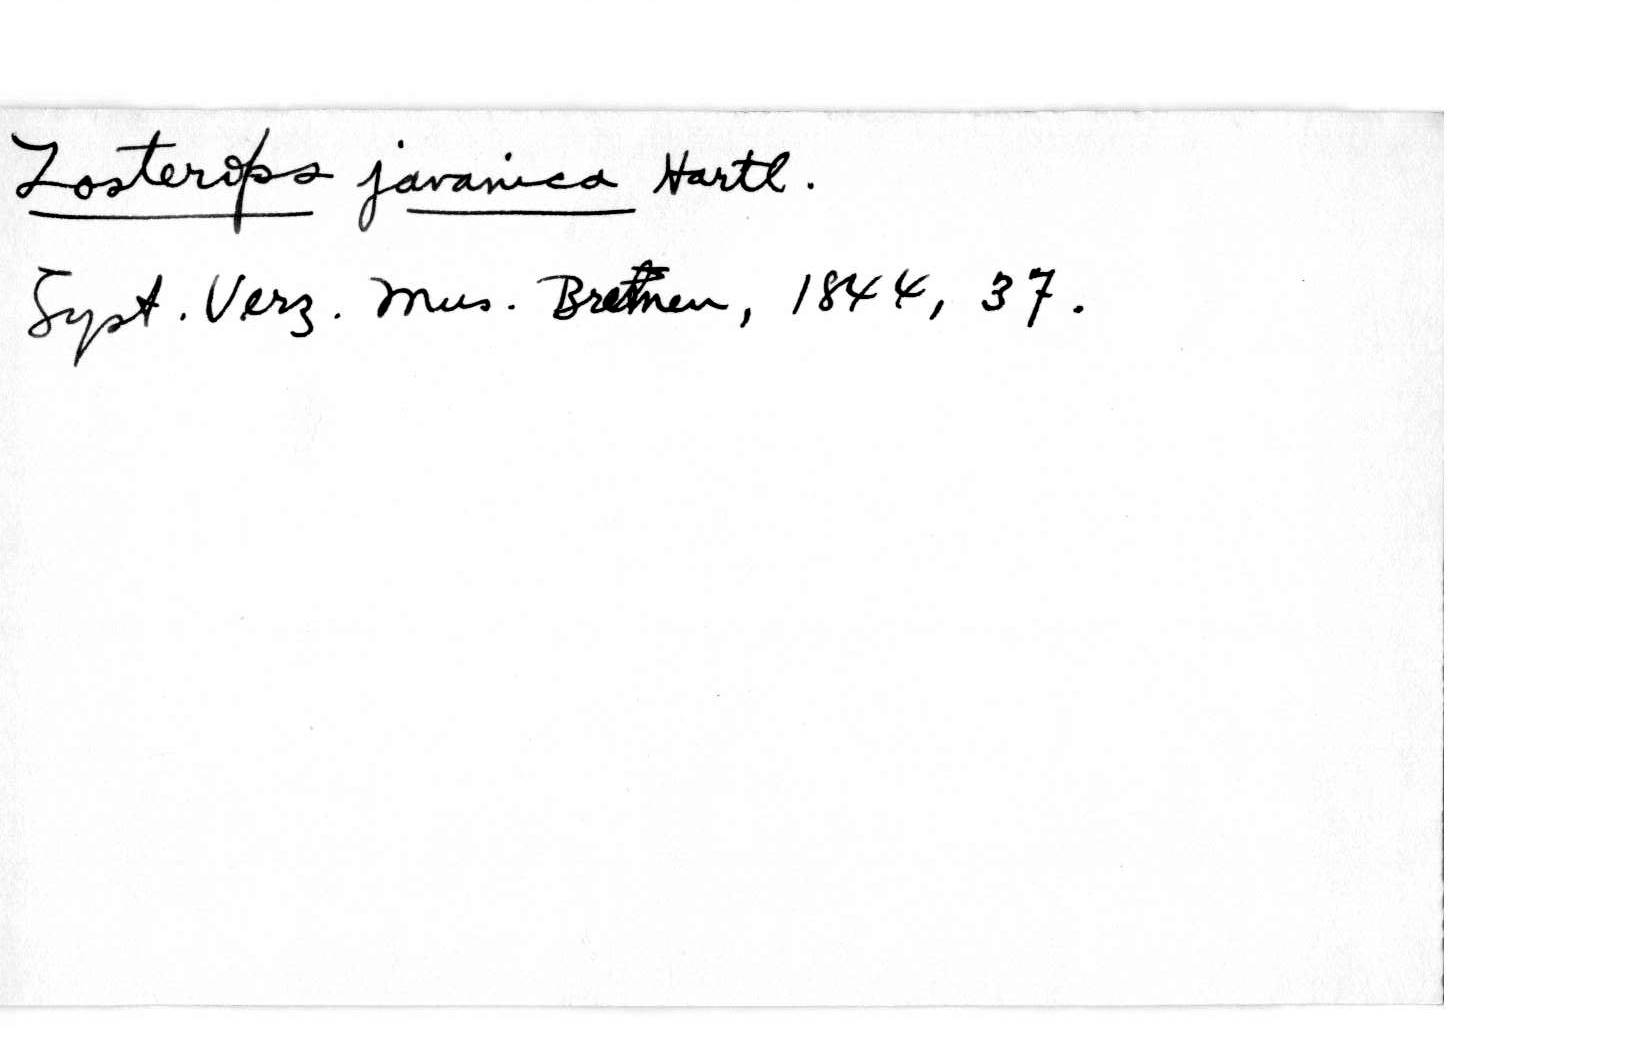 Zosterops javanica Hartl.
Syst. Verz. Mus. Bremen, 1844, 37.